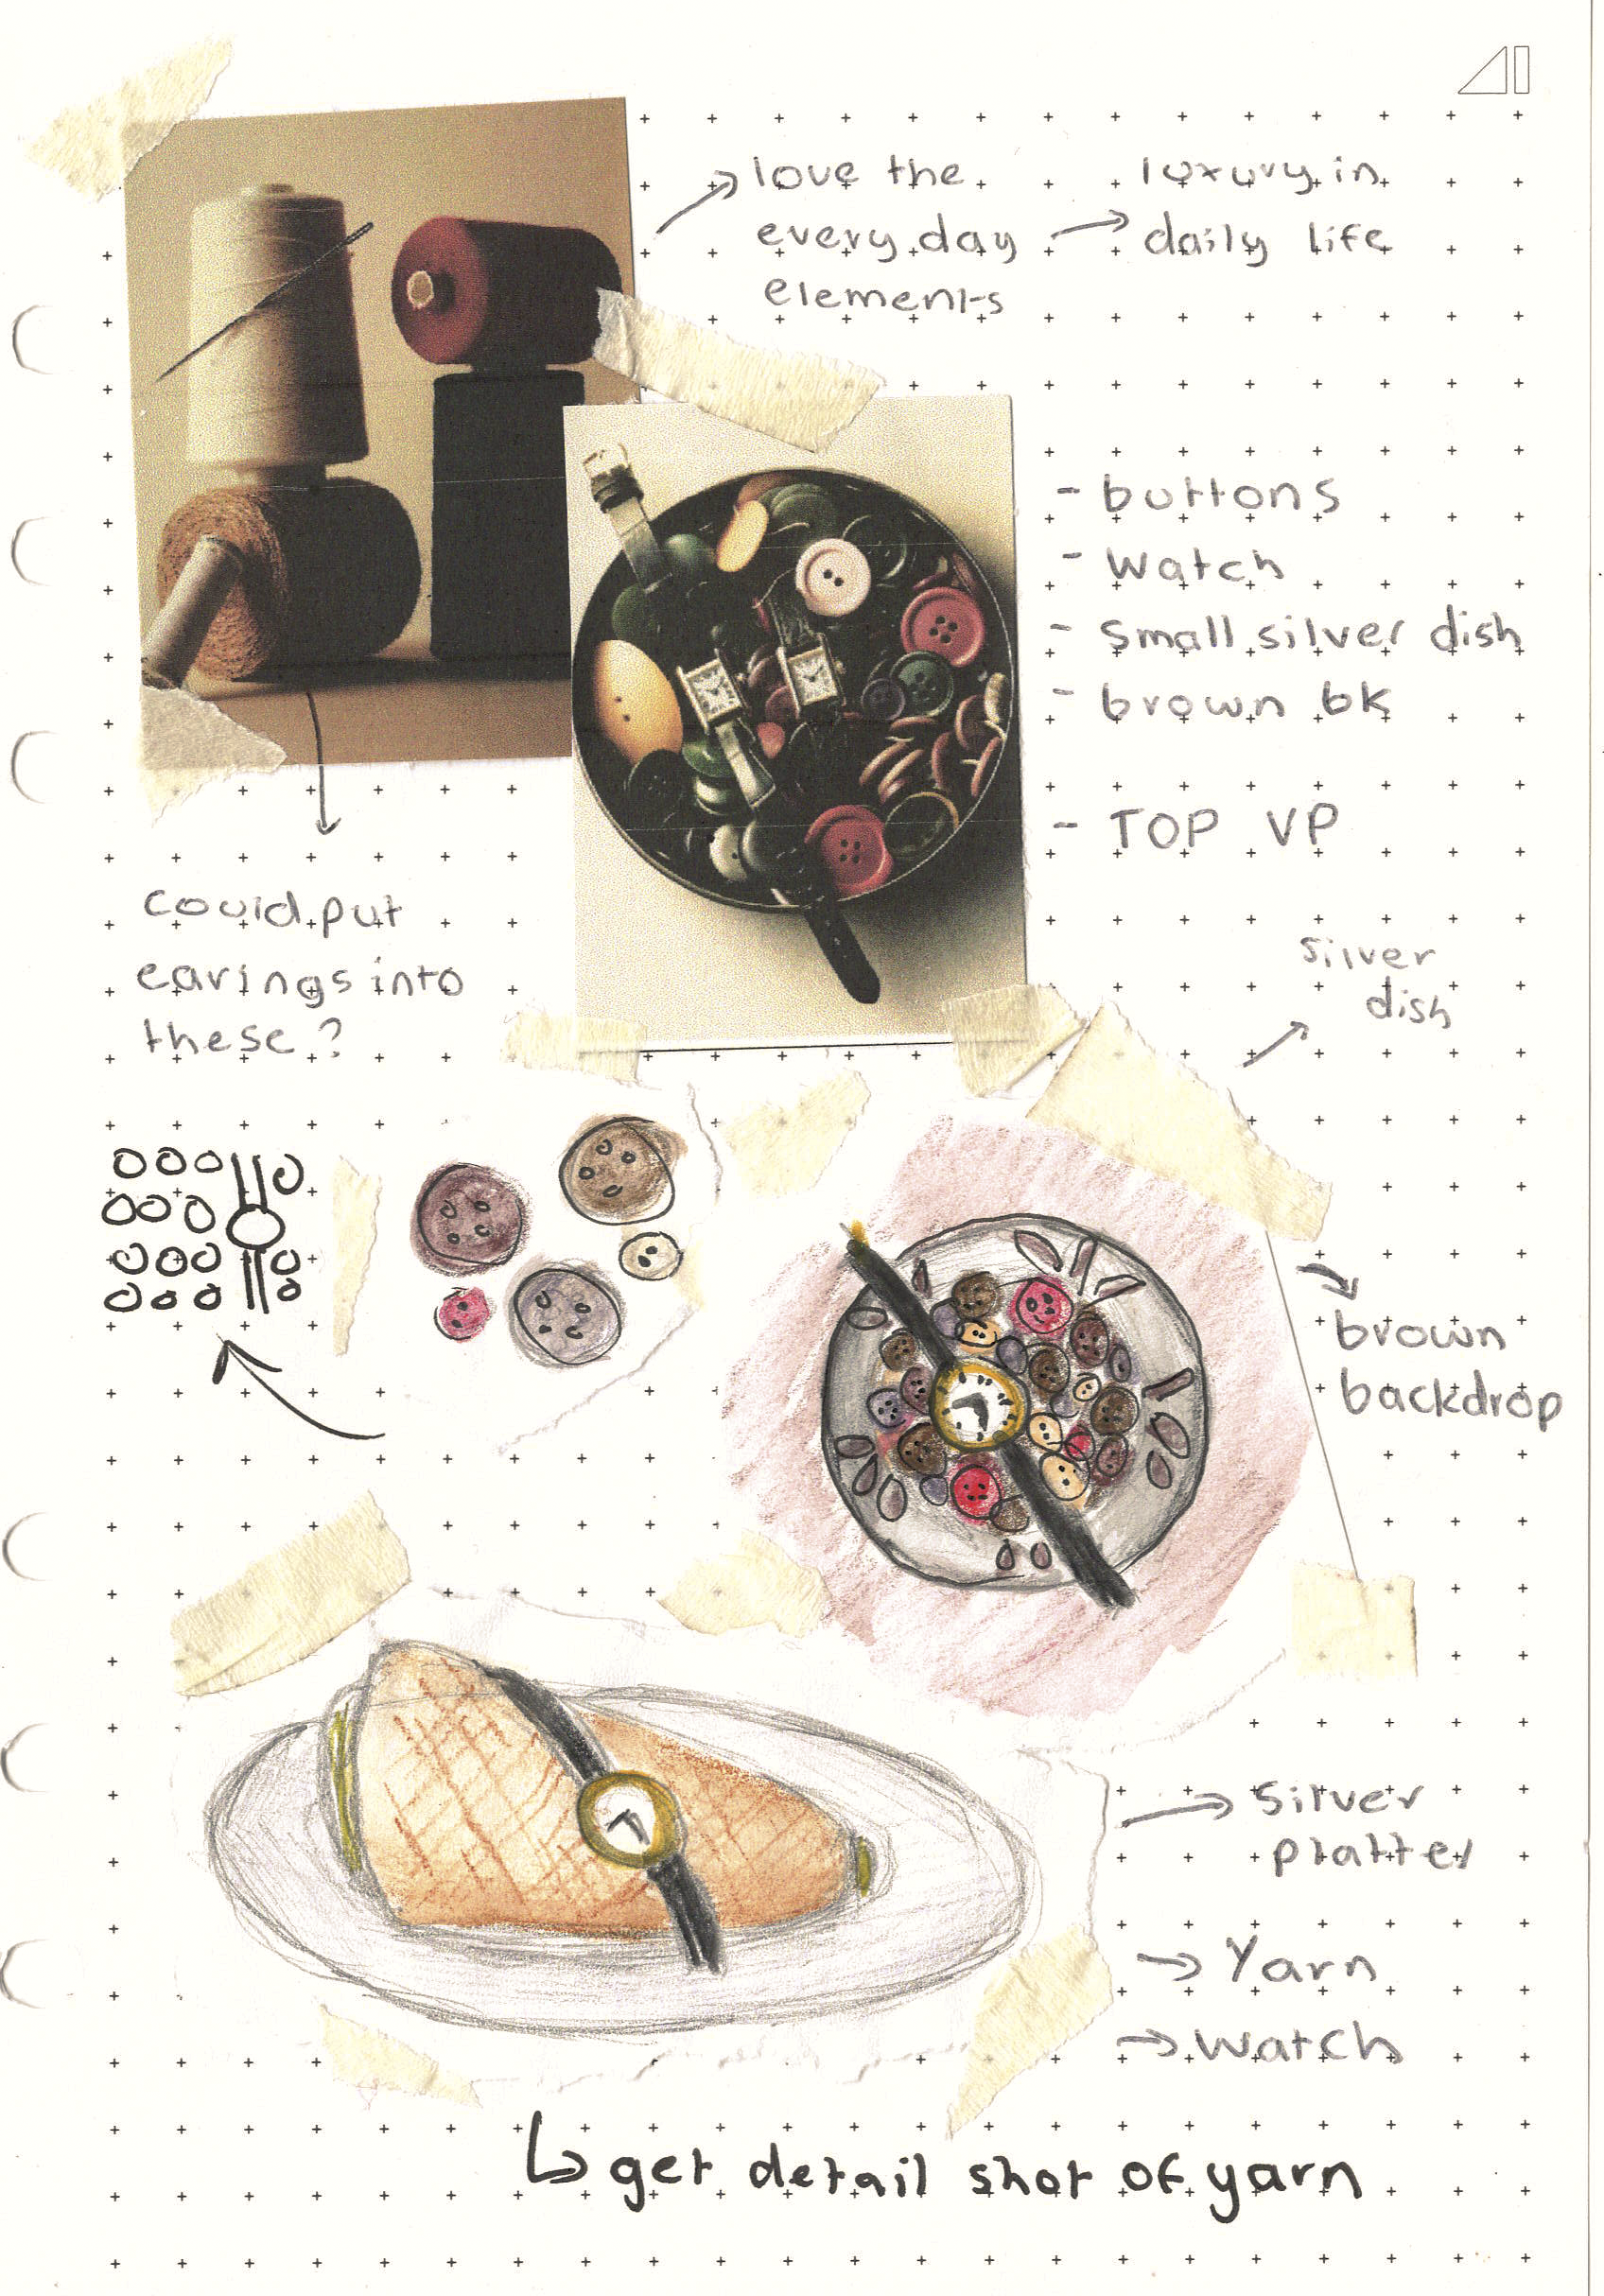 love the
every day
elements
luxury in
daily life
- buttons
- watch
- Small silver dish
- brown bk
- TOP VP
could put
earings into
these?
silver
dish
brown
backdrop
silver
platter
Yarn
watch
get detail shot of yarn